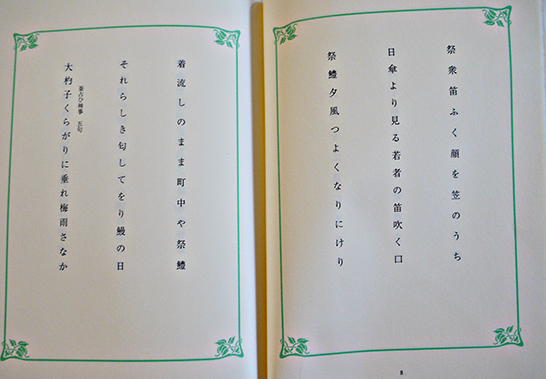 祭衆笛ふく顔を笠のうち
日傘より見る若者の笛吹く口
祭鱧夕風つよくなりにけり
8
着流しのまま町中や祭鱧
それらしき匂してをり鰻の日
釜占ひ神事 五句
大杓子くらがりに垂れ梅雨さなか